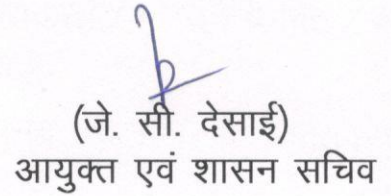 (जे. सी. देसाई)
आयुक्त एवं शासन सचिव